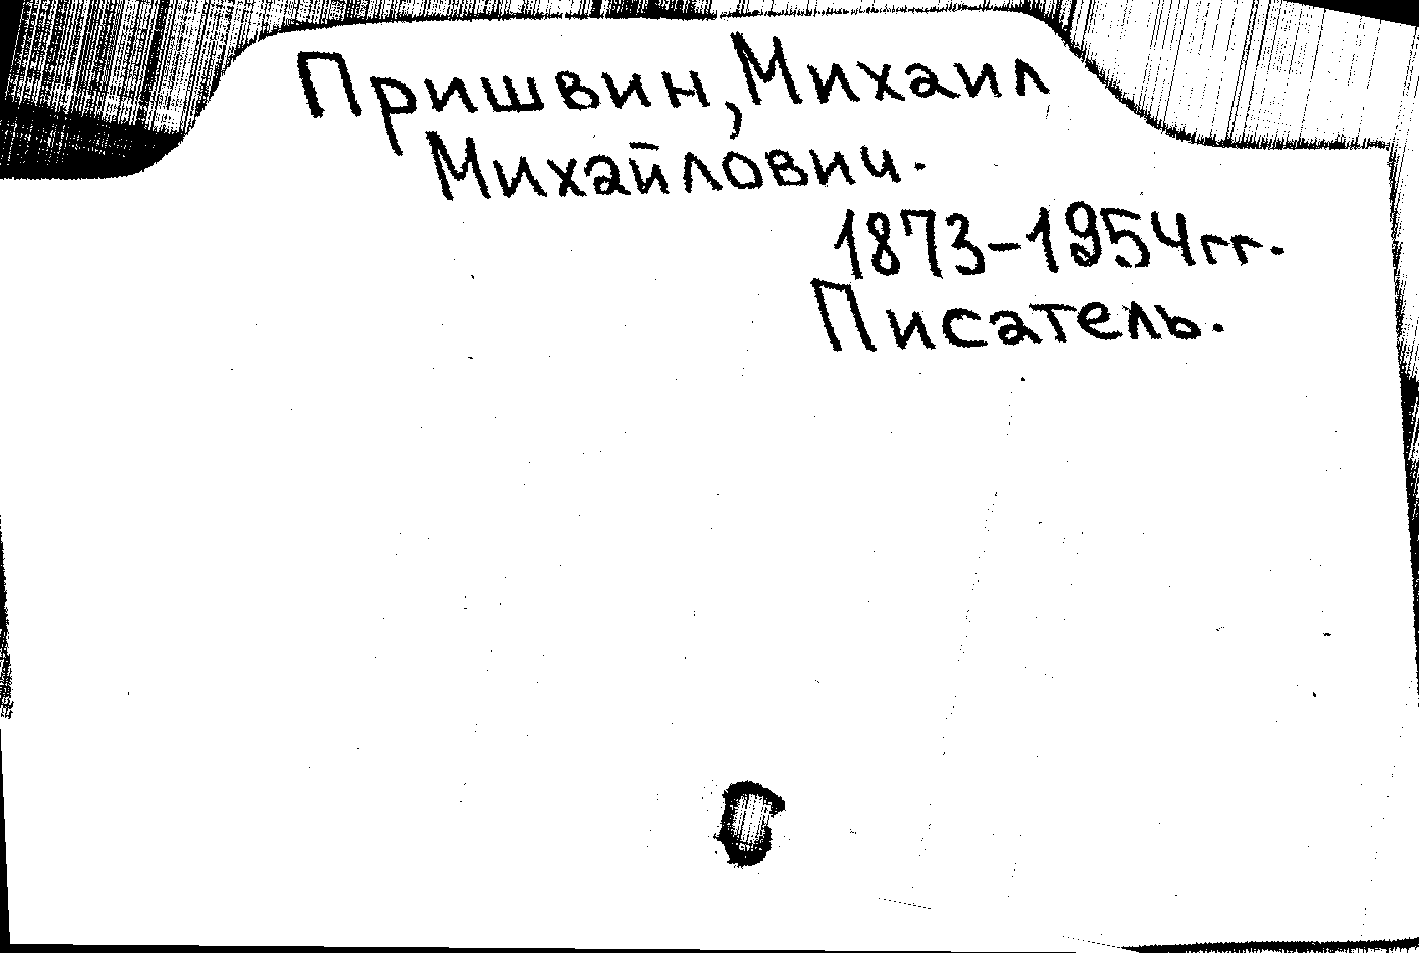 Пришвин, Михаил
Михайлович.
1873-1954гг.
Писатель.